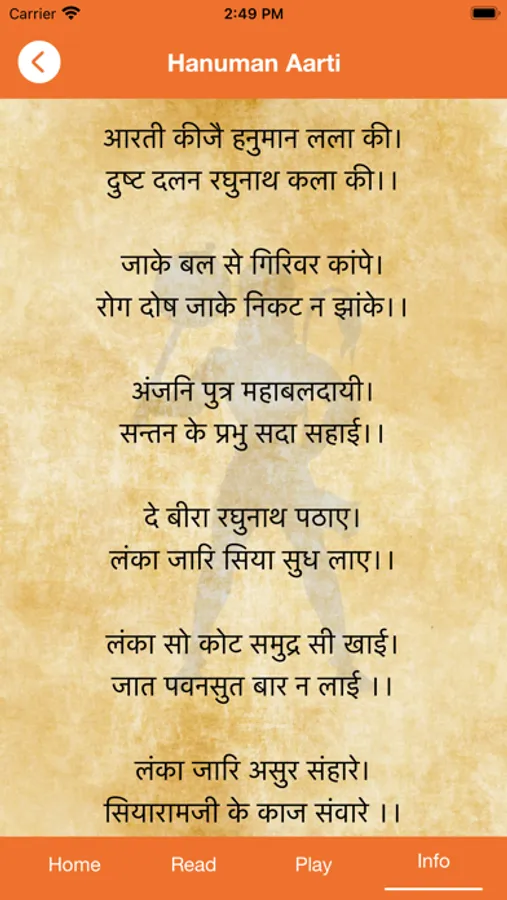 Carrier 2:49 PM
Hanuman Aarti
आरती कीजै हनुमान लला की।
दुष्ट दलन रघुनाथ कला की।।
जाके बल से गिरिवर कांपे।
रोग दोष जाके निकट न झांके।।
अंजनि पुत्र महाबलदायी।
सन्तन के प्रभु सदा सहाई।।
दे बीरा रघुनाथ पठाए।
लंका जारि सिया सुध लाए।।
लंका सो कोट समुद्र सी खाई।
जात पवनसुत बार न लाई ।।
लंका जारि असुर संहारे।
सियारामजी के काज संवारे ।।
Home Read Play Info